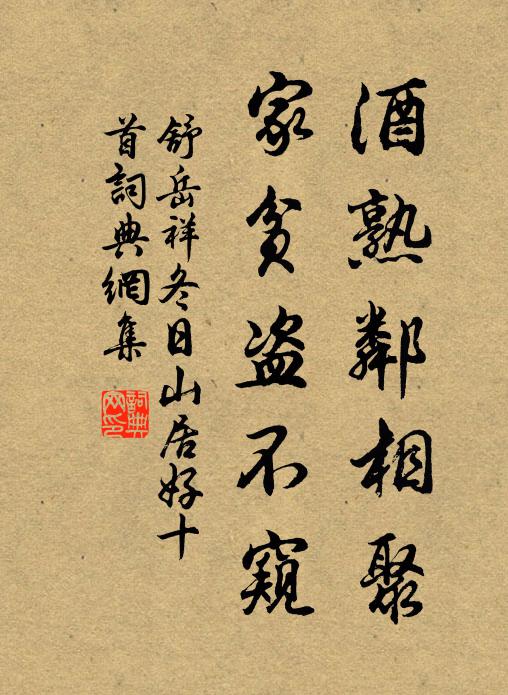 酒熟鄰相聚
家貧盗不窺
舒岳祥冬日山居好十
首詞典網集
詞典
网印